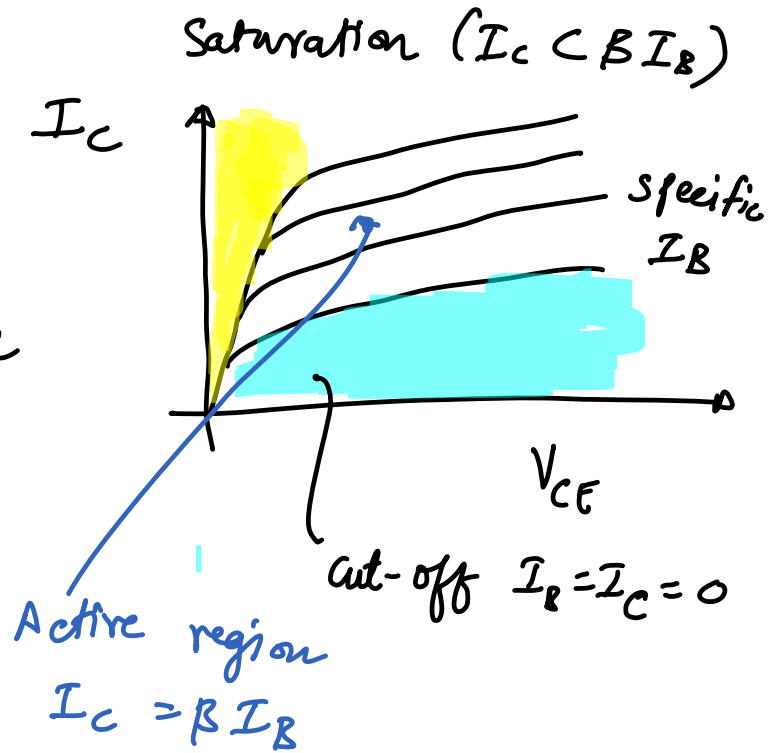 Saturation (I_C < β I_B)
I_C
Specific
I_B
V_CE
Cut-off I_B = I_C = 0
Active region
I_C = β I_B